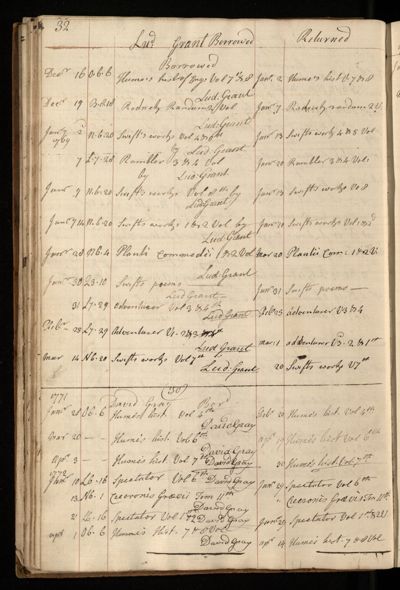 32
Lud. Grant Borrowed Returned
Borrowed
Decr 16 O.6.6 Hume's hist of Eng. Vol 7 & 8 Janr 2 Hume's hist V 7 & 8
Lud Grant
Decr 19 Roderick Random 2 Vol Janr 7 Roderick random 2 V.
Lud: Grant
Janry 2 N.6.20 Swifts works Vol 4 & 5th Janr 13 Swifts works 4 & 5 Vol
1769 by Lud Grant
7 L.7-28 Rambler 3 & 4 Vol Janr 20 Rambler 3 & 4 Vol:
by Lud: Grant
Janr 9 N.6.20 Swifts works Vol 8th by Janr 13 Swifts works Vo 8
Lud: Grant
Janry 14 N.6.20 Swifts works 1 & 2 Vol by Swifts works Vol 1 & 2d
Lud Grant
Janr 28 N.6.4 Plauti commoedia 1 & 2 Vol 20 Plauti Com: 1 & 2 V:
Lud Grant
Janr 30 L3-10 Swifts poems Janr 31 Swifts poems —
Lud Grant
31 L7-29 adventurer Vol 3 & 4th Febr 25 adventurer V 3 & 4
Lud Grant
Febr 28 L7-29 Adventurer V. 2 & 1 mar: 1 adventurer V. 2 & 1st
Lud Grant
mar 14 N6.20 Swifts works Vol 7th 20 Swifts works V 7th
Lud. Grant
1771 David Gray
Janr 21 O6.6 Hume's hist. Vol 4th Febr 20 Hume's hist. Vol 4th
David Gray
Mar 20 — Hume's hist. Vol 6th apr Hume's hist Vol 6th
David Gray
Apr 3 — Hume's hist. Vol 7th David Gray Hume's hist. Vol 7th
1772
Janr 10 L6-16 Spectator Vol 6th David Gray Janr 29 Spectator Vol 6th
13 N6.1 Ciceronis Graevii Tom 11th Ciceronis Graevii Tom 11th
David Gray
21 L6-16 Spectator Vol 1st David Gray Janr 29 Spectator Vol 1st
apr 1 O6-6 Hume's Hist. 7 & 8 Vol apr 14 Hume's hist. 7 & 8 Vol
David Gray